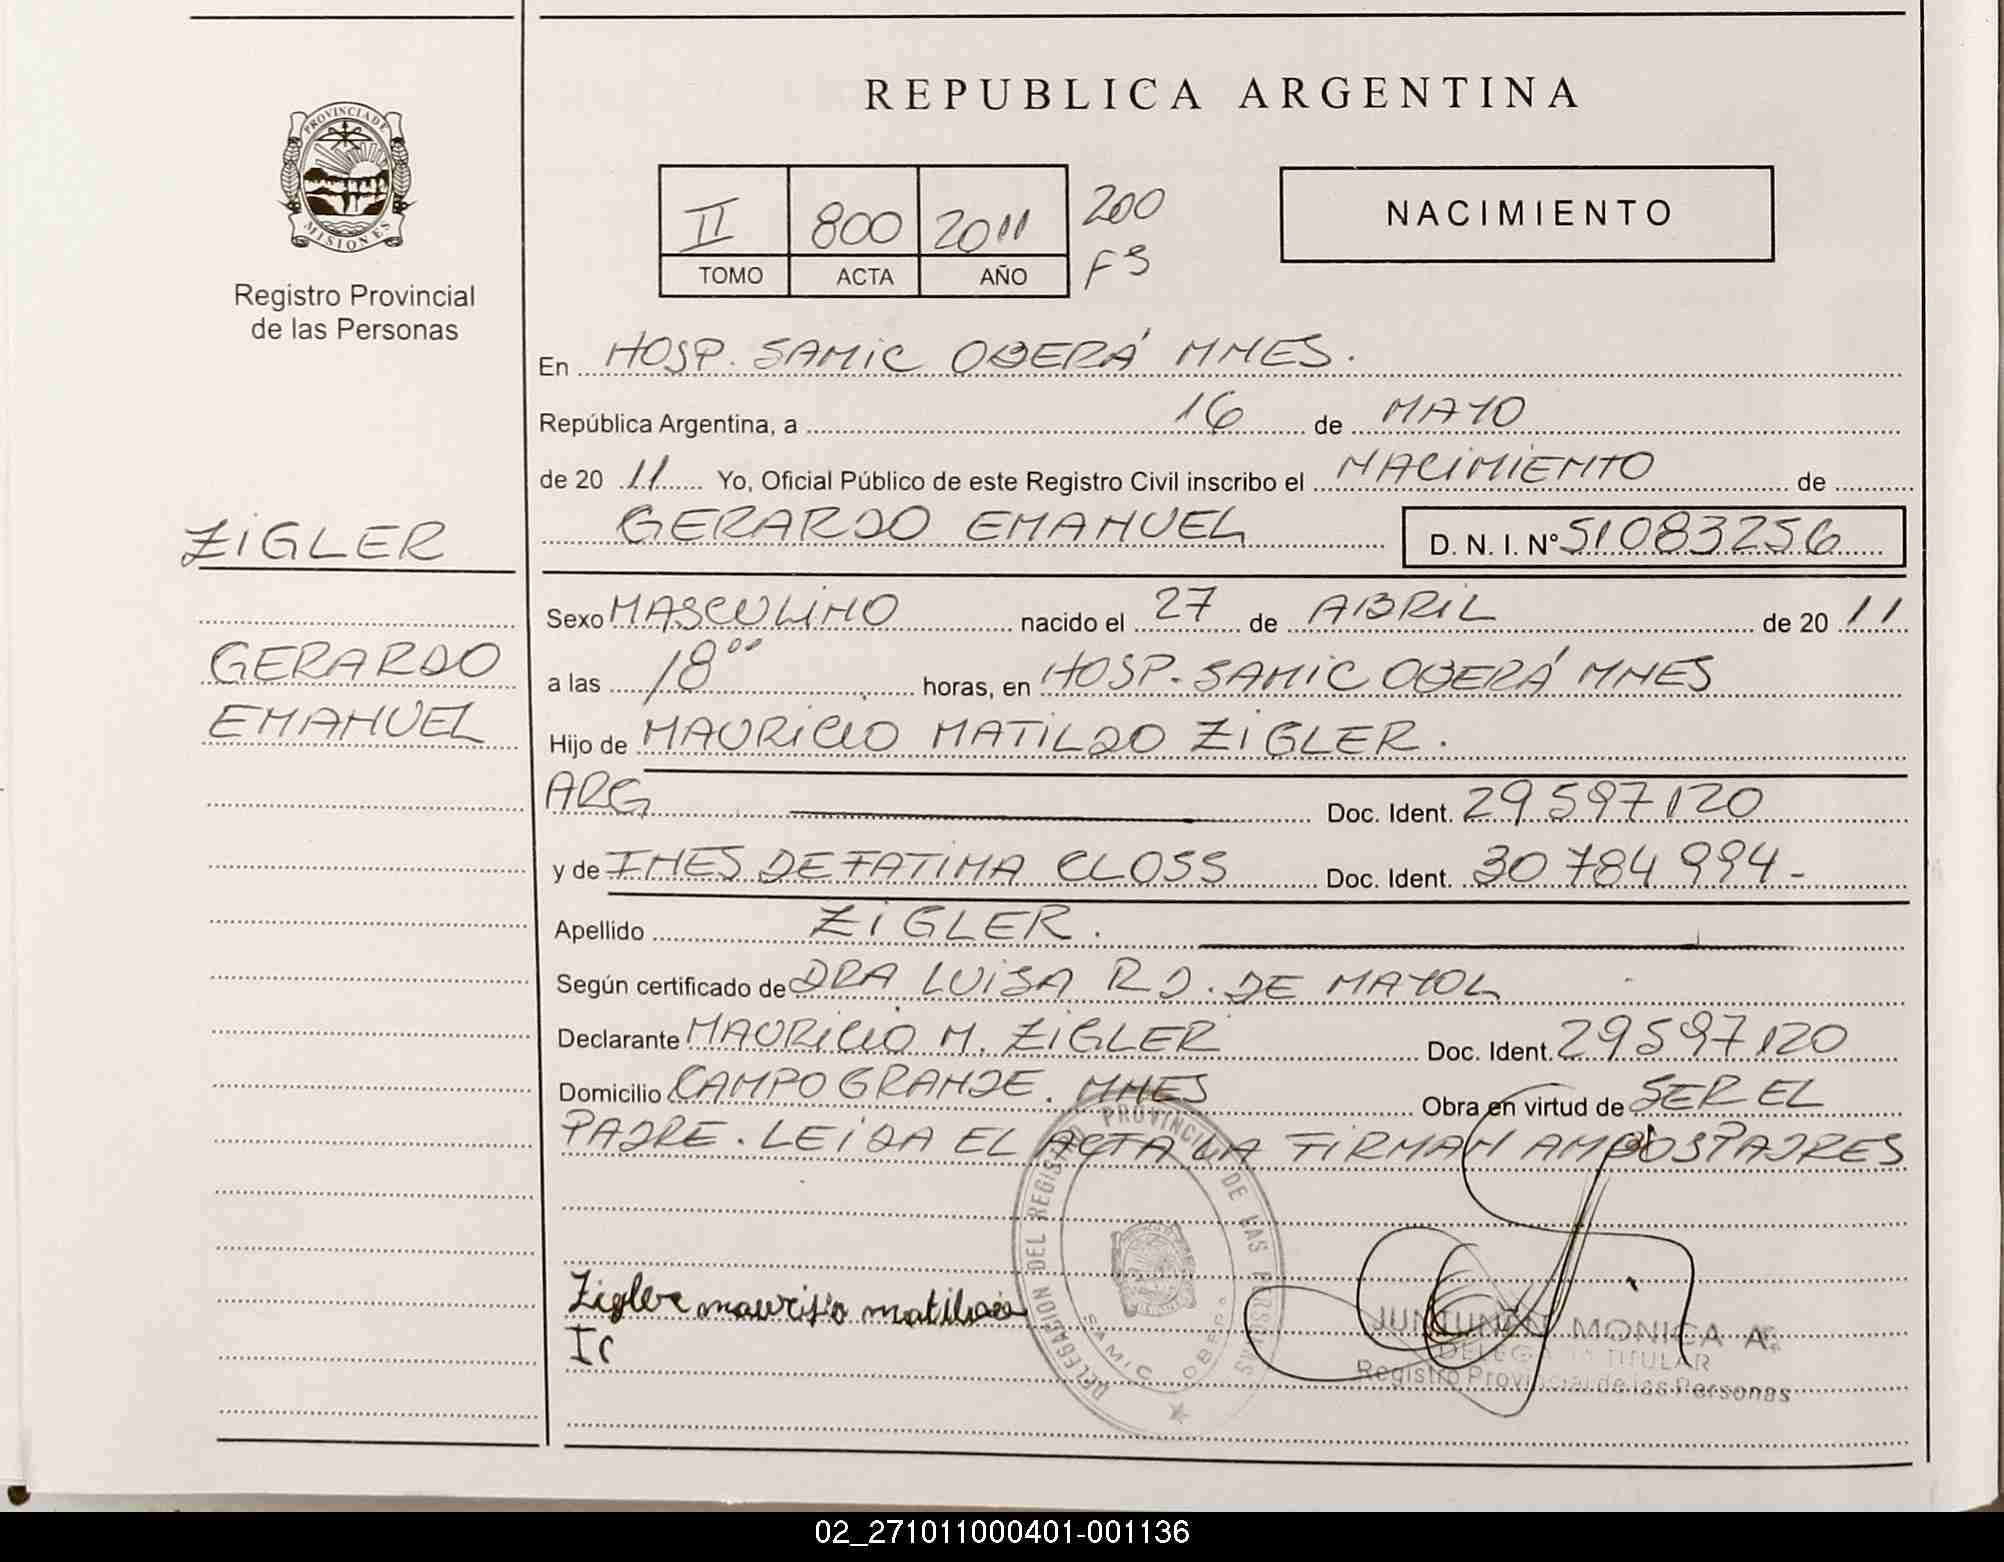 REPUBLICA ARGENTINA
PROVINCIA DE
MISIONES
Registro Provincial
de las Personas
II 800 2011 200
TOMO ACTA AÑO FS
NACIMIENTO
En HOSP. SAMIC OBERÁ MNES.
República Argentina, a 16 de MAYO
de 20 11 Yo, Oficial Público de este Registro Civil inscribo el NACIMIENTO de
GERARDO EMANUEL D. N. I. Nº 51083256
ZIGLER
GERARDO
EMANUEL
Sexo MASCULINO nacido el 27 de ABRIL de 20 11
a las 18⁰⁰ horas, en HOSP. SAMIC OBERÁ MNES
Hijo de MAURICIO MATILDO ZIGLER.
ARG Doc. Ident. 29597120
y de INES DE FATIMA CLOSS Doc. Ident. 30784994-
Apellido ZIGLER.
Según certificado de DRA LUISA R D. DE MAYOL
Declarante MAURICIO M. ZIGLER Doc. Ident. 29597120
Domicilio CAMPO GRANDE. MNES Obra en virtud de SER EL
PADRE. LEIDA EL ACTA LA FIRMAN AMBOS PADRES
DELEGACION DEL REGISTRO PROVINCIAL DE LAS PERSONAS
SAMIC OBERA
Zigler maurisio
MONICA A.
TITULAR
Registro Provincial de las Personas
02_271011000401-001136